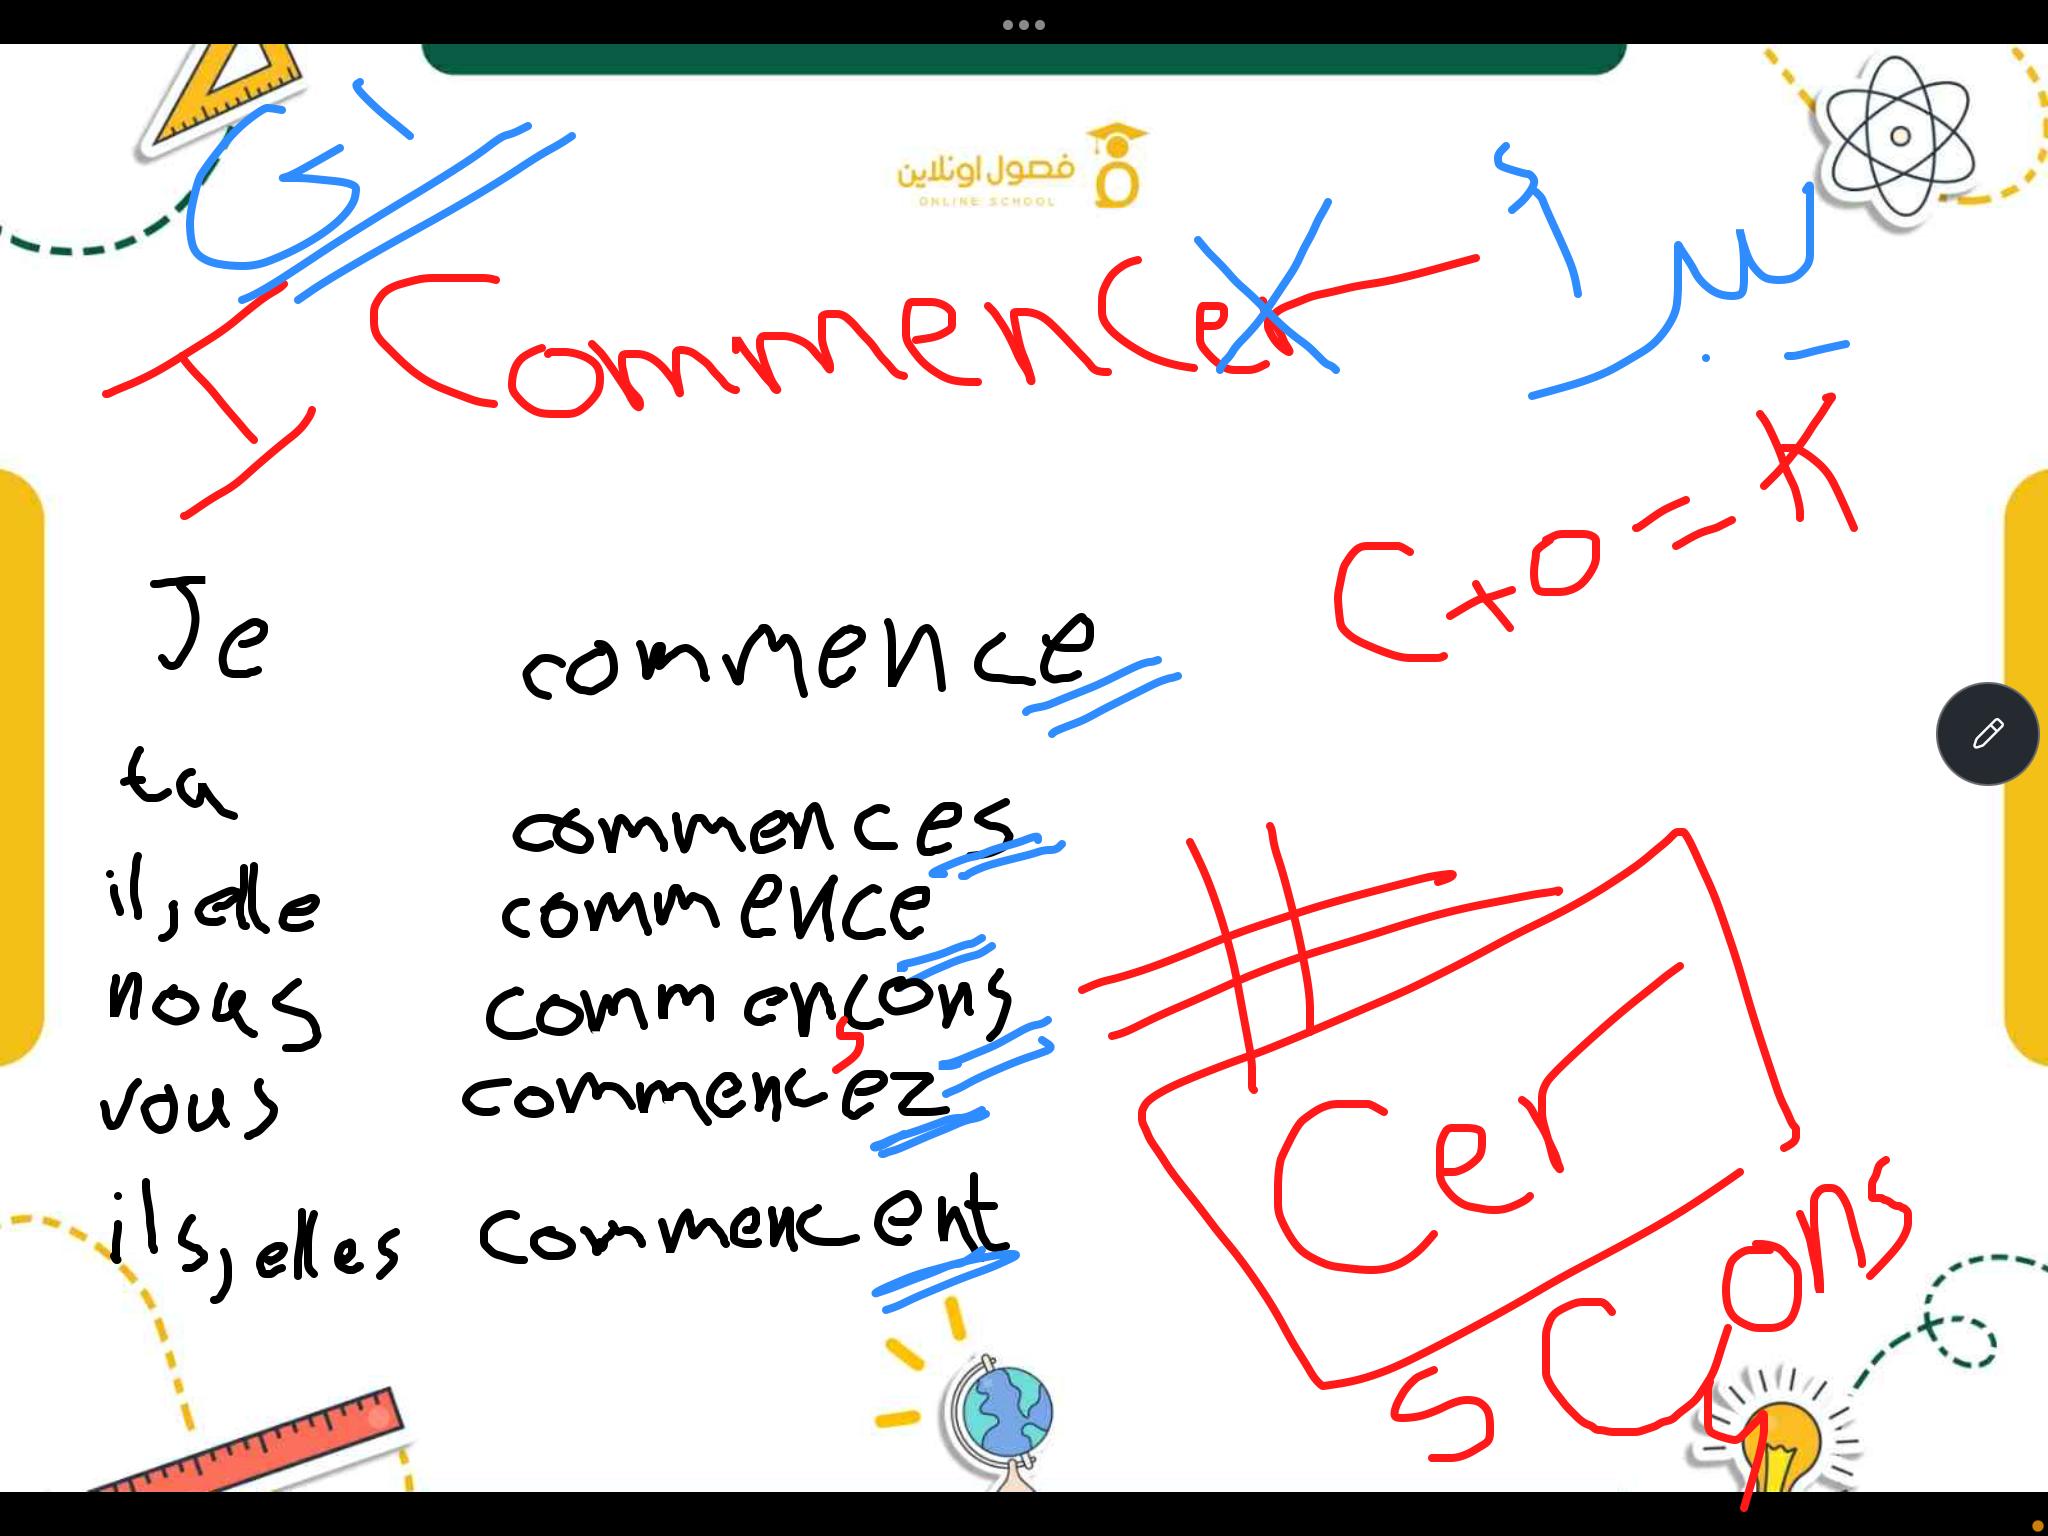 G1
فصول اونلاين
ONLINE SCHOOL
I Commencer يبدأ
C+O=K
Je commence
tu commences
il, elle commence
nous commençons
vous commencez
ils, elles commencent
Cer
s Çons